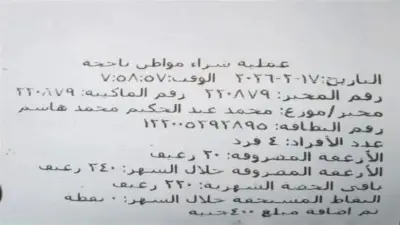 عملية شراء مواطن ناجحة
التاريخ: ١٧-٢-٢٠٢٦ الوقت: ٧:٥٨:٥٧
رقم المخبز: ٢٢٠٨٧٩ رقم الماكينة: ٢٢٠٨٧٩
مخبز/موزع: محمد عبد الحكيم محمد هاشم
رقم البطاقة: ١٢٢٠٠٥٢٩٢٨٩٥
عدد الأفراد: ٤ فرد
الأرغفة المصروفة: ٢٠ رغيف
الأرغفة المصروفة خلال الشهر: ٢٤٠ رغيف
باقى الحصة الشهرية: ٢٢٠ رغيف
النقاط المستحقة خلال الشهر: ٠ نقطة
تم اضافة مبلغ ٤٠٠ جنيه